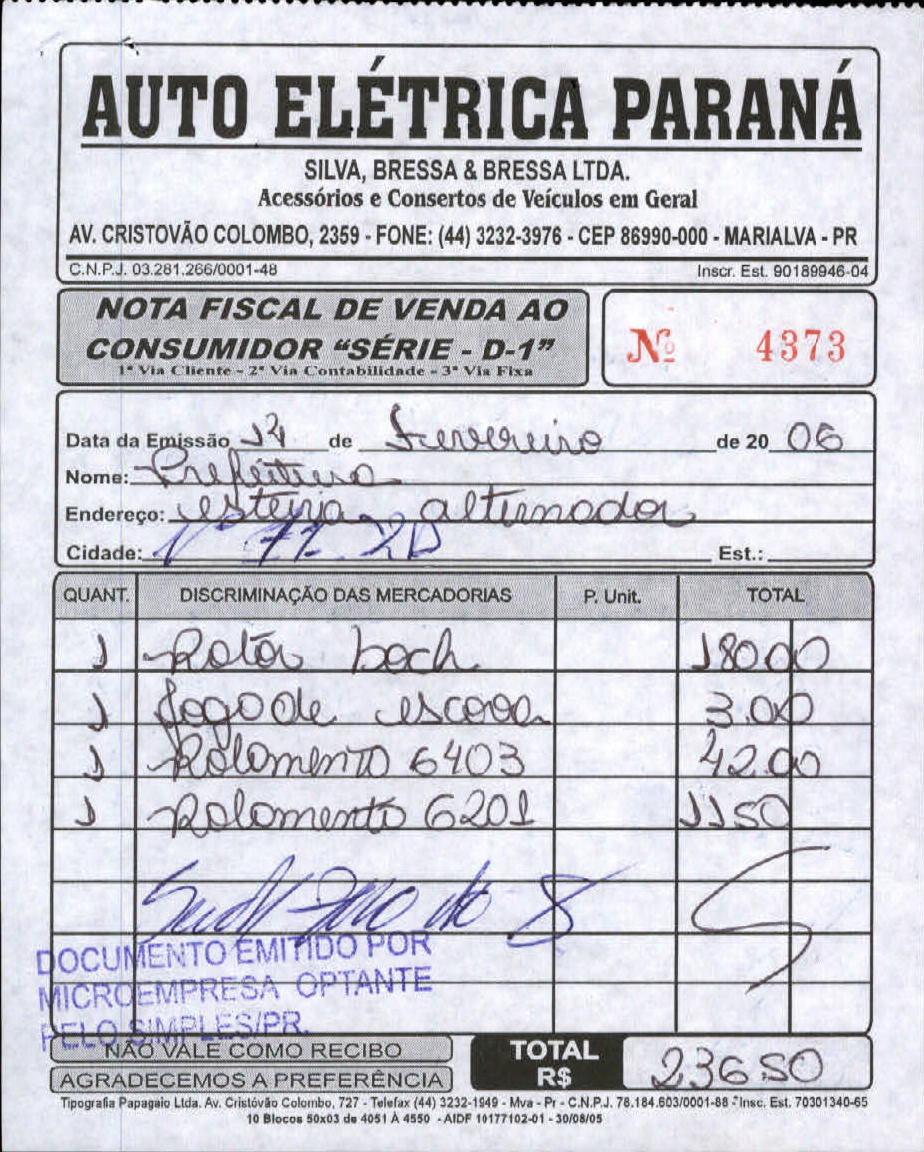 AUTO ELÉTRICA PARANÁ
SILVA, BRESSA & BRESSA LTDA.
Acessórios e Consertos de Veículos em Geral
AV. CRISTOVÃO COLOMBO, 2359 - FONE: (44) 3232-3976 - CEP 86990-000 - MARIALVA - PR
C.N.P.J. 03.281.266/0001-48 Inscr. Est. 90189946-04
NOTA FISCAL DE VENDA AO
CONSUMIDOR "SÉRIE - D-1"
1ª Via Cliente - 2ª Via Contabilidade - 3ª Via Fixa
Nº 4373
Data da Emissão de Fevereiro de 20 06
Nome: Prefeitura
Endereço: alternador
Cidade: Est.:
QUANT. DISCRIMINAÇÃO DAS MERCADORIAS P. Unit. TOTAL
1 Rotor boch 180.00
1 Jogo de escova 3.00
1 Rolamento 6403 42.00
1 Rolamento 6201 1150
DOCUMENTO EMITIDO POR
MICROEMPRESA OPTANTE
PELO SIMPLES/PR.
NÃO VALE COMO RECIBO
AGRADECEMOS A PREFERÊNCIA
TOTAL R$ 23650
Tipografia Papagaio Ltda. Av. Cristóvão Colombo, 727 - Telefax (44) 3232-1949 - Mva - Pr - C.N.P.J. 78.184.603/0001-88 - Insc. Est. 70301340-65
10 Blocos 50x03 de 4051 À 4550 - AIDF 10177102-01 - 30/08/05